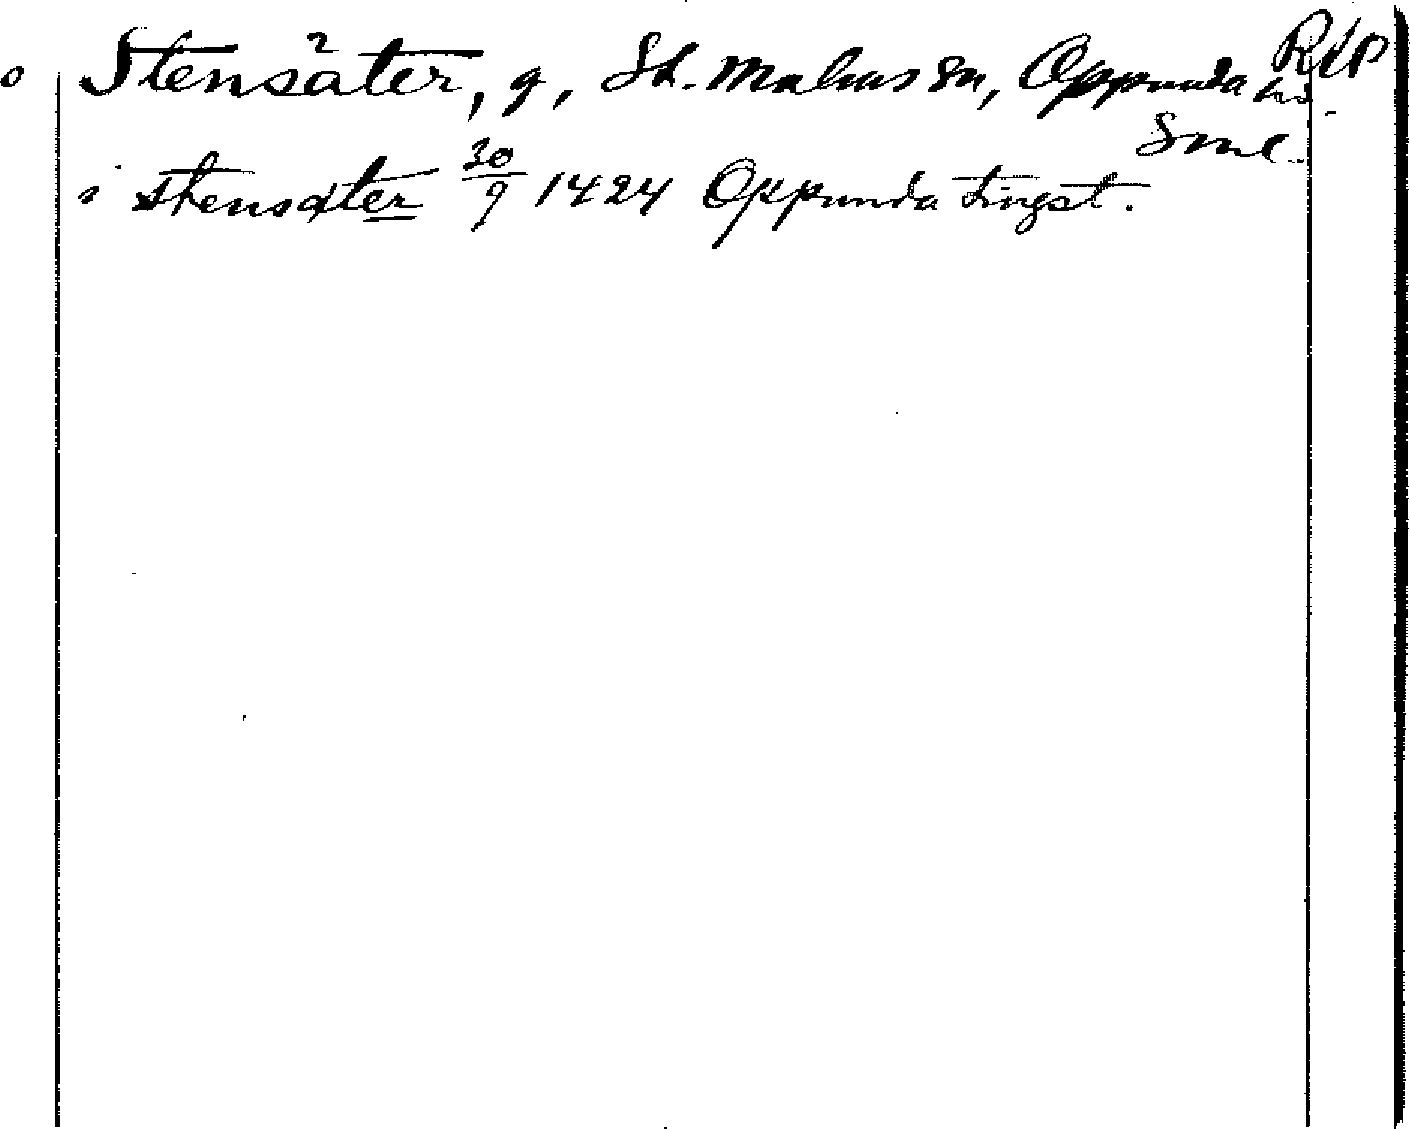 o Stensäter, g, St. Malms sn, Oppunda hd. RAP
Sml.
i stensæter 30/9 1424 Oppunda tingst.